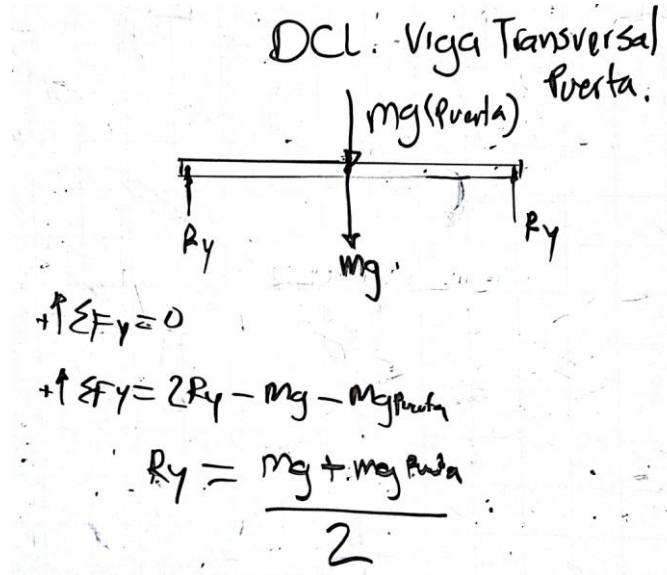 DCL: Viga Transversal
Puerta.
mg (Puerta)
Ry
Ry
mg.
+↑ΣFy=0
+↑ΣFy= 2Ry - mg - mg Puerta
Ry = mg + mg Puerta
2